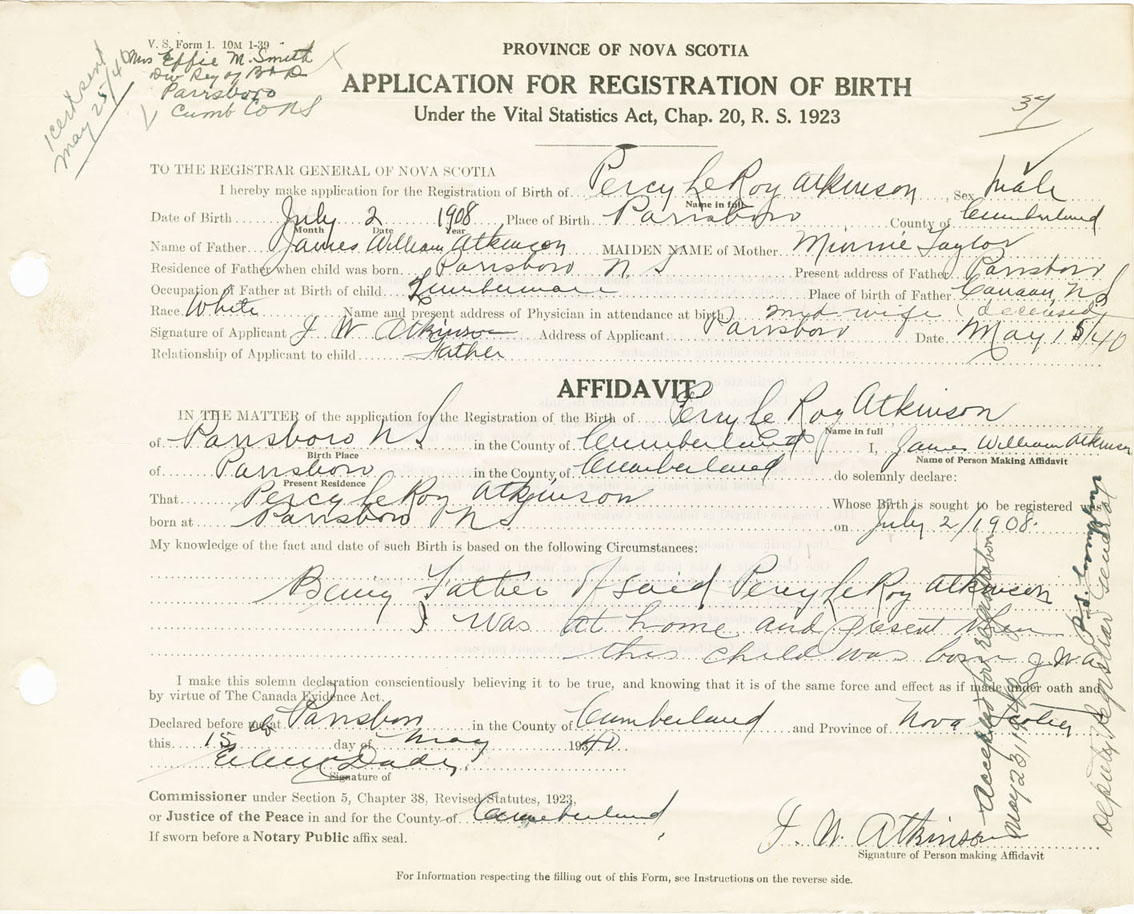 V. S. Form 1. 10M 1-39
Mrs Effie M. Smith
Div Reg of B & D
Parrsboro
Cumb Co NS
1 cert sent
May 25/40
PROVINCE OF NOVA SCOTIA
APPLICATION FOR REGISTRATION OF BIRTH
Under the Vital Statistics Act, Chap. 20, R. S. 1923
37
TO THE REGISTRAR GENERAL OF NOVA SCOTIA
I hereby make application for the Registration of Birth of Percy LeRoy Atkinson, Sex Male
Name in full
Date of Birth July 2 1908 Place of Birth Parrsboro County of Cumberland
Month Date Year
Name of Father James William Atkinson MAIDEN NAME of Mother Minnie Taylor
Residence of Father when child was born Parrsboro N S Present address of Father Parrsboro
Occupation of Father at Birth of child Lumberman Place of birth of Father Canaan, NS
Race White Name and present address of Physician in attendance at birth mid wife (deceased)
Signature of Applicant J W Atkinson Address of Applicant Parrsboro Date May 15/40
Relationship of Applicant to child Father
AFFIDAVIT
IN THE MATTER of the application for the Registration of the Birth of Percy Le Roy Atkinson
Name in full
of Parrsboro N S in the County of Cumberland I, James William Atkinson
Birth Place Name of Person Making Affidavit
of Parrsboro in the County of Cumberland do solemnly declare:
Present Residence
That Percy LeRoy Atkinson Whose Birth is sought to be registered was
born at Parrsboro NS on July 2/1908.
My knowledge of the fact and date of such Birth is based on the following Circumstances:
Being Father of said Percy LeRoy Atkinson
I was at home and present when
this child was born J W A
I make this solemn declaration conscientiously believing it to be true, and knowing that it is of the same force and effect as if made under oath and
by virtue of The Canada Evidence Act.
Declared before me at Parrsboro in the County of Cumberland and Province of Nova Scotia
this 15 day of May 1940
Signature of
Commissioner under Section 5, Chapter 38, Revised Statutes, 1923,
or Justice of the Peace in and for the County of Cumberland
If sworn before a Notary Public affix seal.
J. W. Atkinson
Signature of Person making Affidavit
For Information respecting the filling out of this Form, see Instructions on the reverse side.
Accepted for registration
May 23/1940
Deputy Registrar General